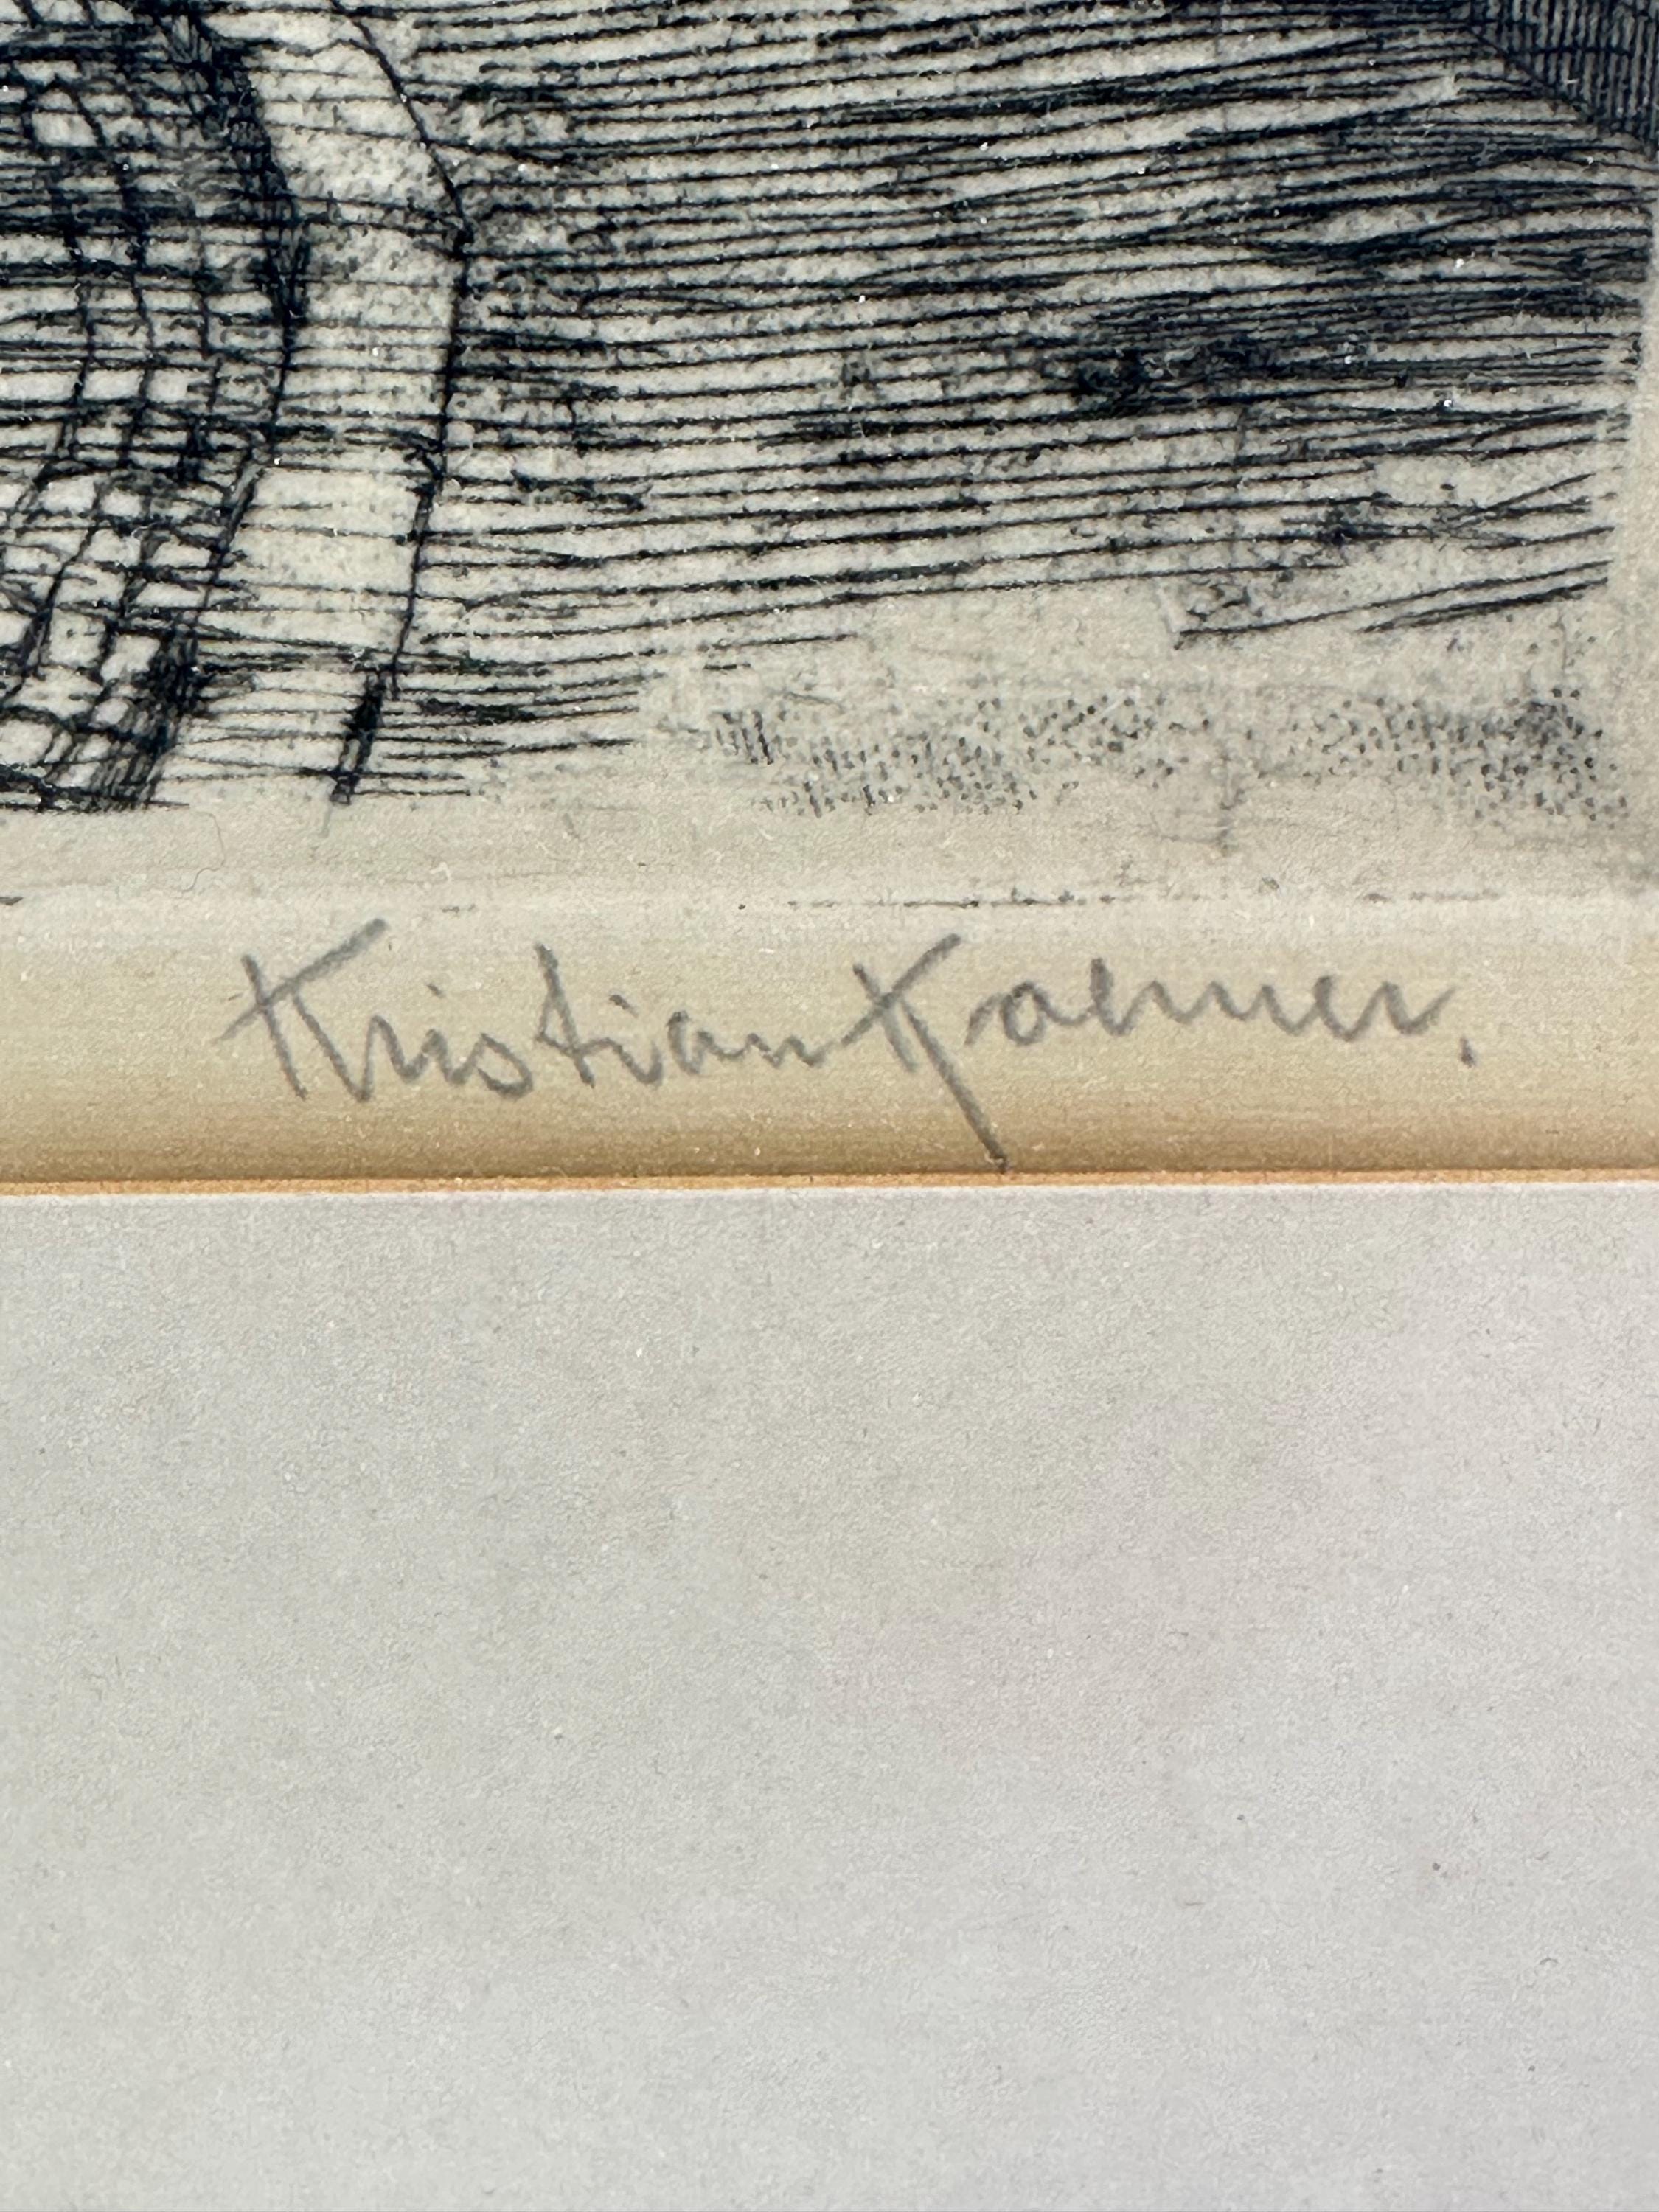 Kristian Kraemer.